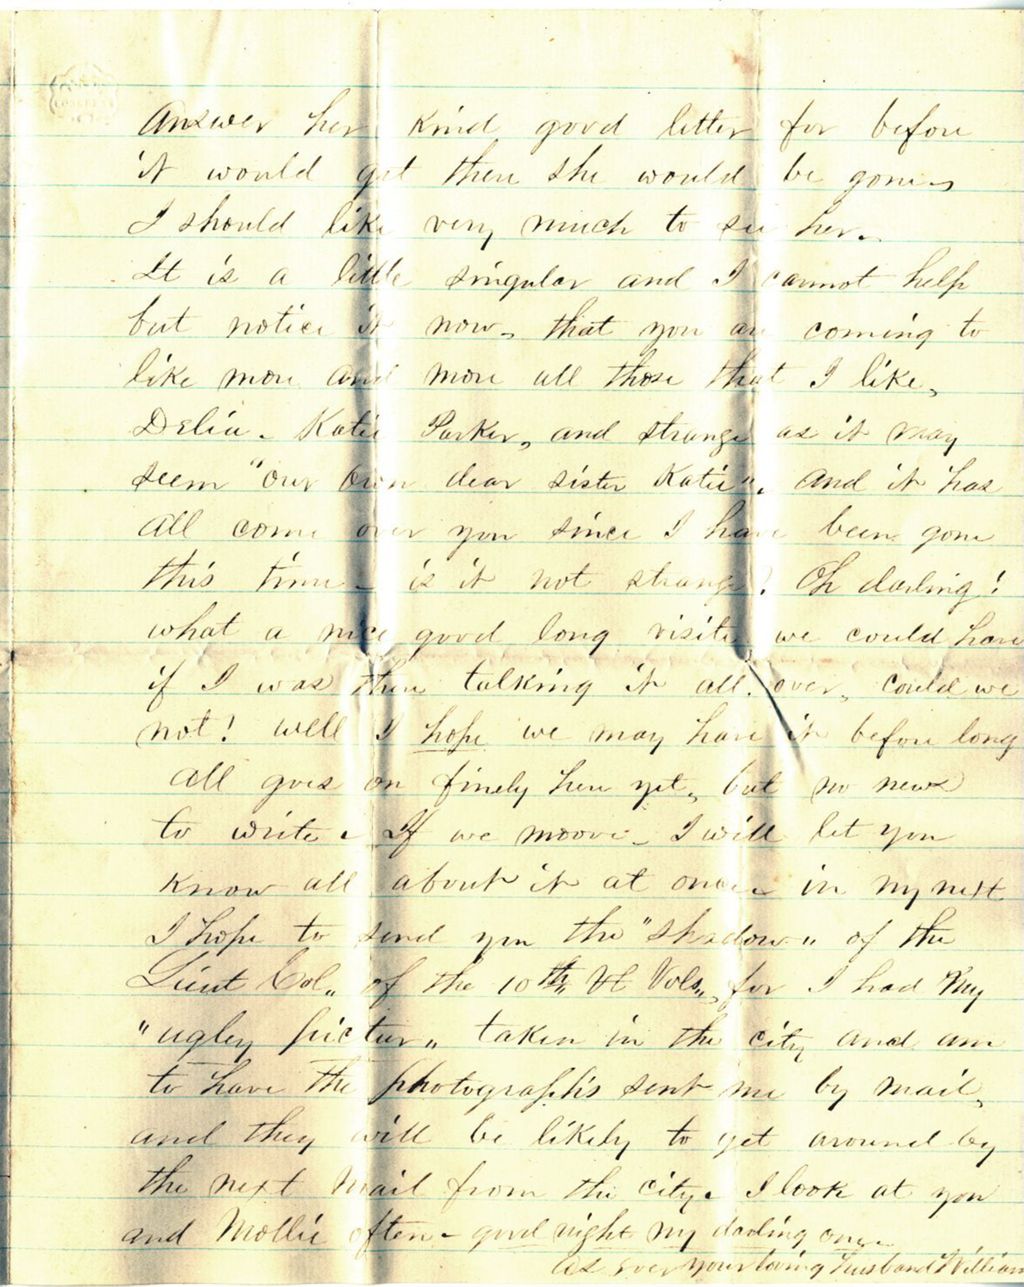 CONGRESS
Answer her kind good letter for before
it would get there she would be gone,
I should like very much to see her.
It is a little singular and I cannot help
but notice it now, that you are coming to
like more and more all those that I like,
Delia - Katie Parker, and strange as it may
seem "our own dear sister Katie", and it has
all come over you since I have been gone
this time - is it not strange? Oh darling!
what a nice good long visite we could have
if I was there talking it all over, could we
not! well I hope we may have it before long
All goes on finely here yet, but no news
to write. If we moove - I will let you
know all about it at once - in my next
I hope to send you the "shadow" of the
Lieut Col,, of the 10th,, Vt Vols,, for I had my
"ugley pictur,, taken in the city and am
to have the photographs sent me by mail,
and they will be likely to get around by
the next mail from the city. I look at you
and Mollie often - good night my darling once -
As ever your loving husband William